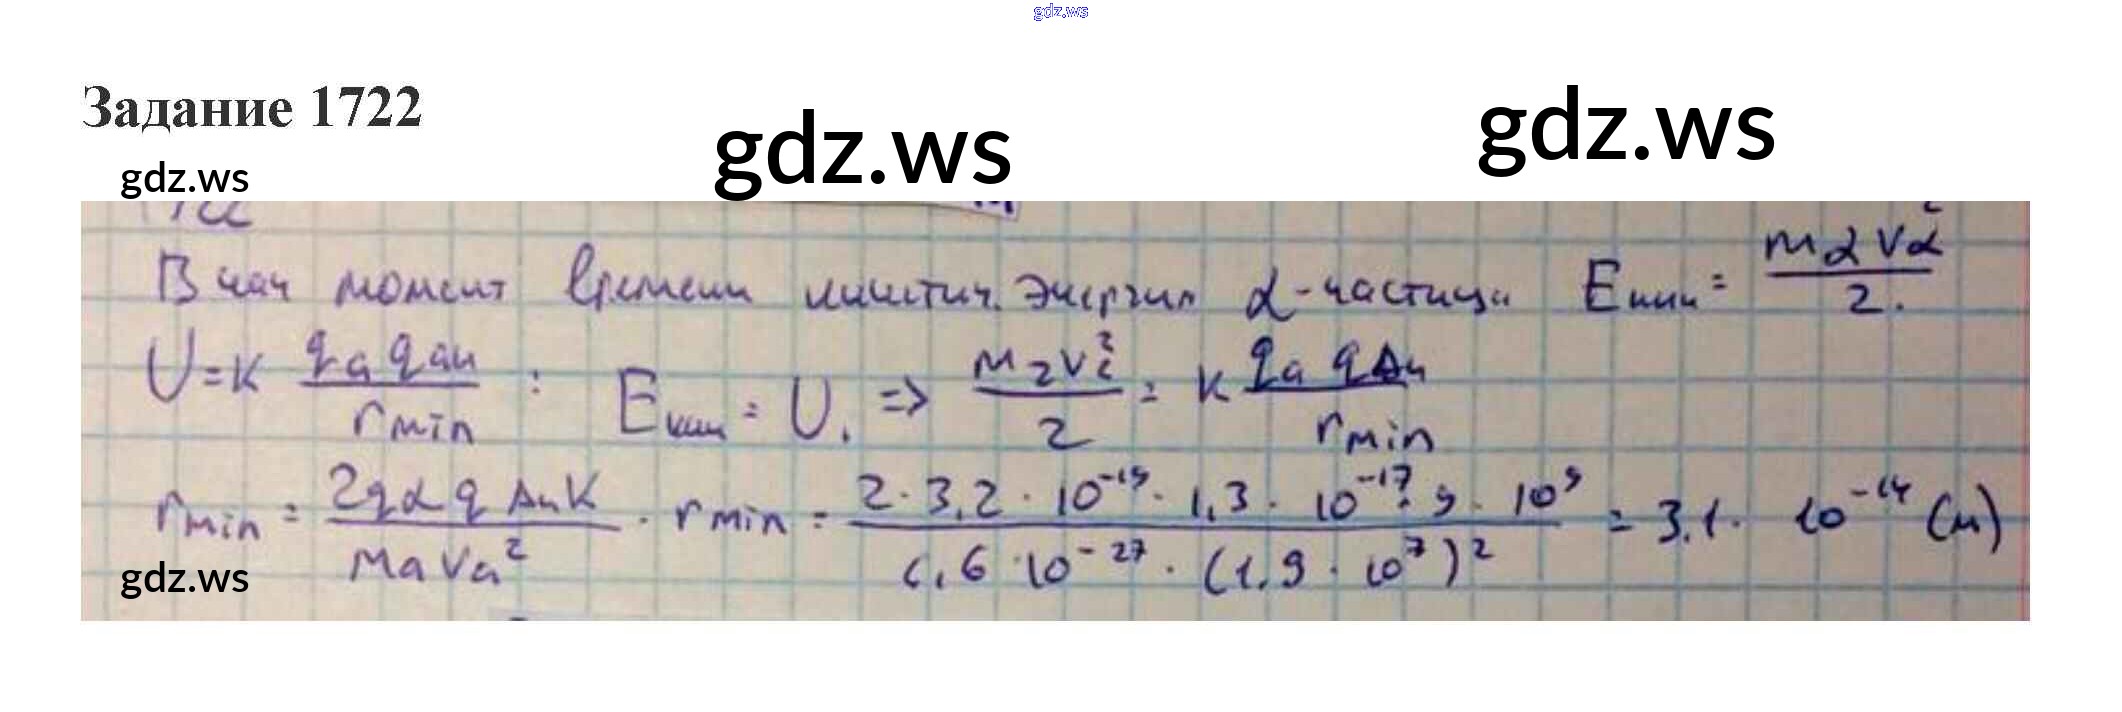 gdz.ws
Задание 1722
gdz.ws
gdz.ws
gdz.ws
1722
В нач момент времени кинетич. энергия α-частицы Eкин = mαvα² / 2.
U = K qa qau / rmin : Eкин = U. => m2v² / 2 = K qa qAu / rmin
rmin = 2qα q Au K / ma va² . rmin = 2 · 3,2 · 10⁻¹⁹ · 1,3 · 10⁻¹⁷ · 9 · 10⁹ / 6,6 · 10⁻²⁷ · (1,9 · 10⁷)² = 3,1 · 10⁻¹⁴ (м)
gdz.ws